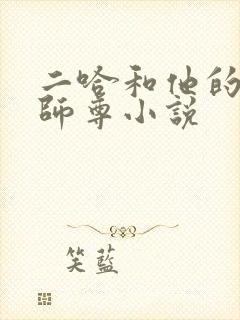 二哈和他的
師尊小說
笑藍